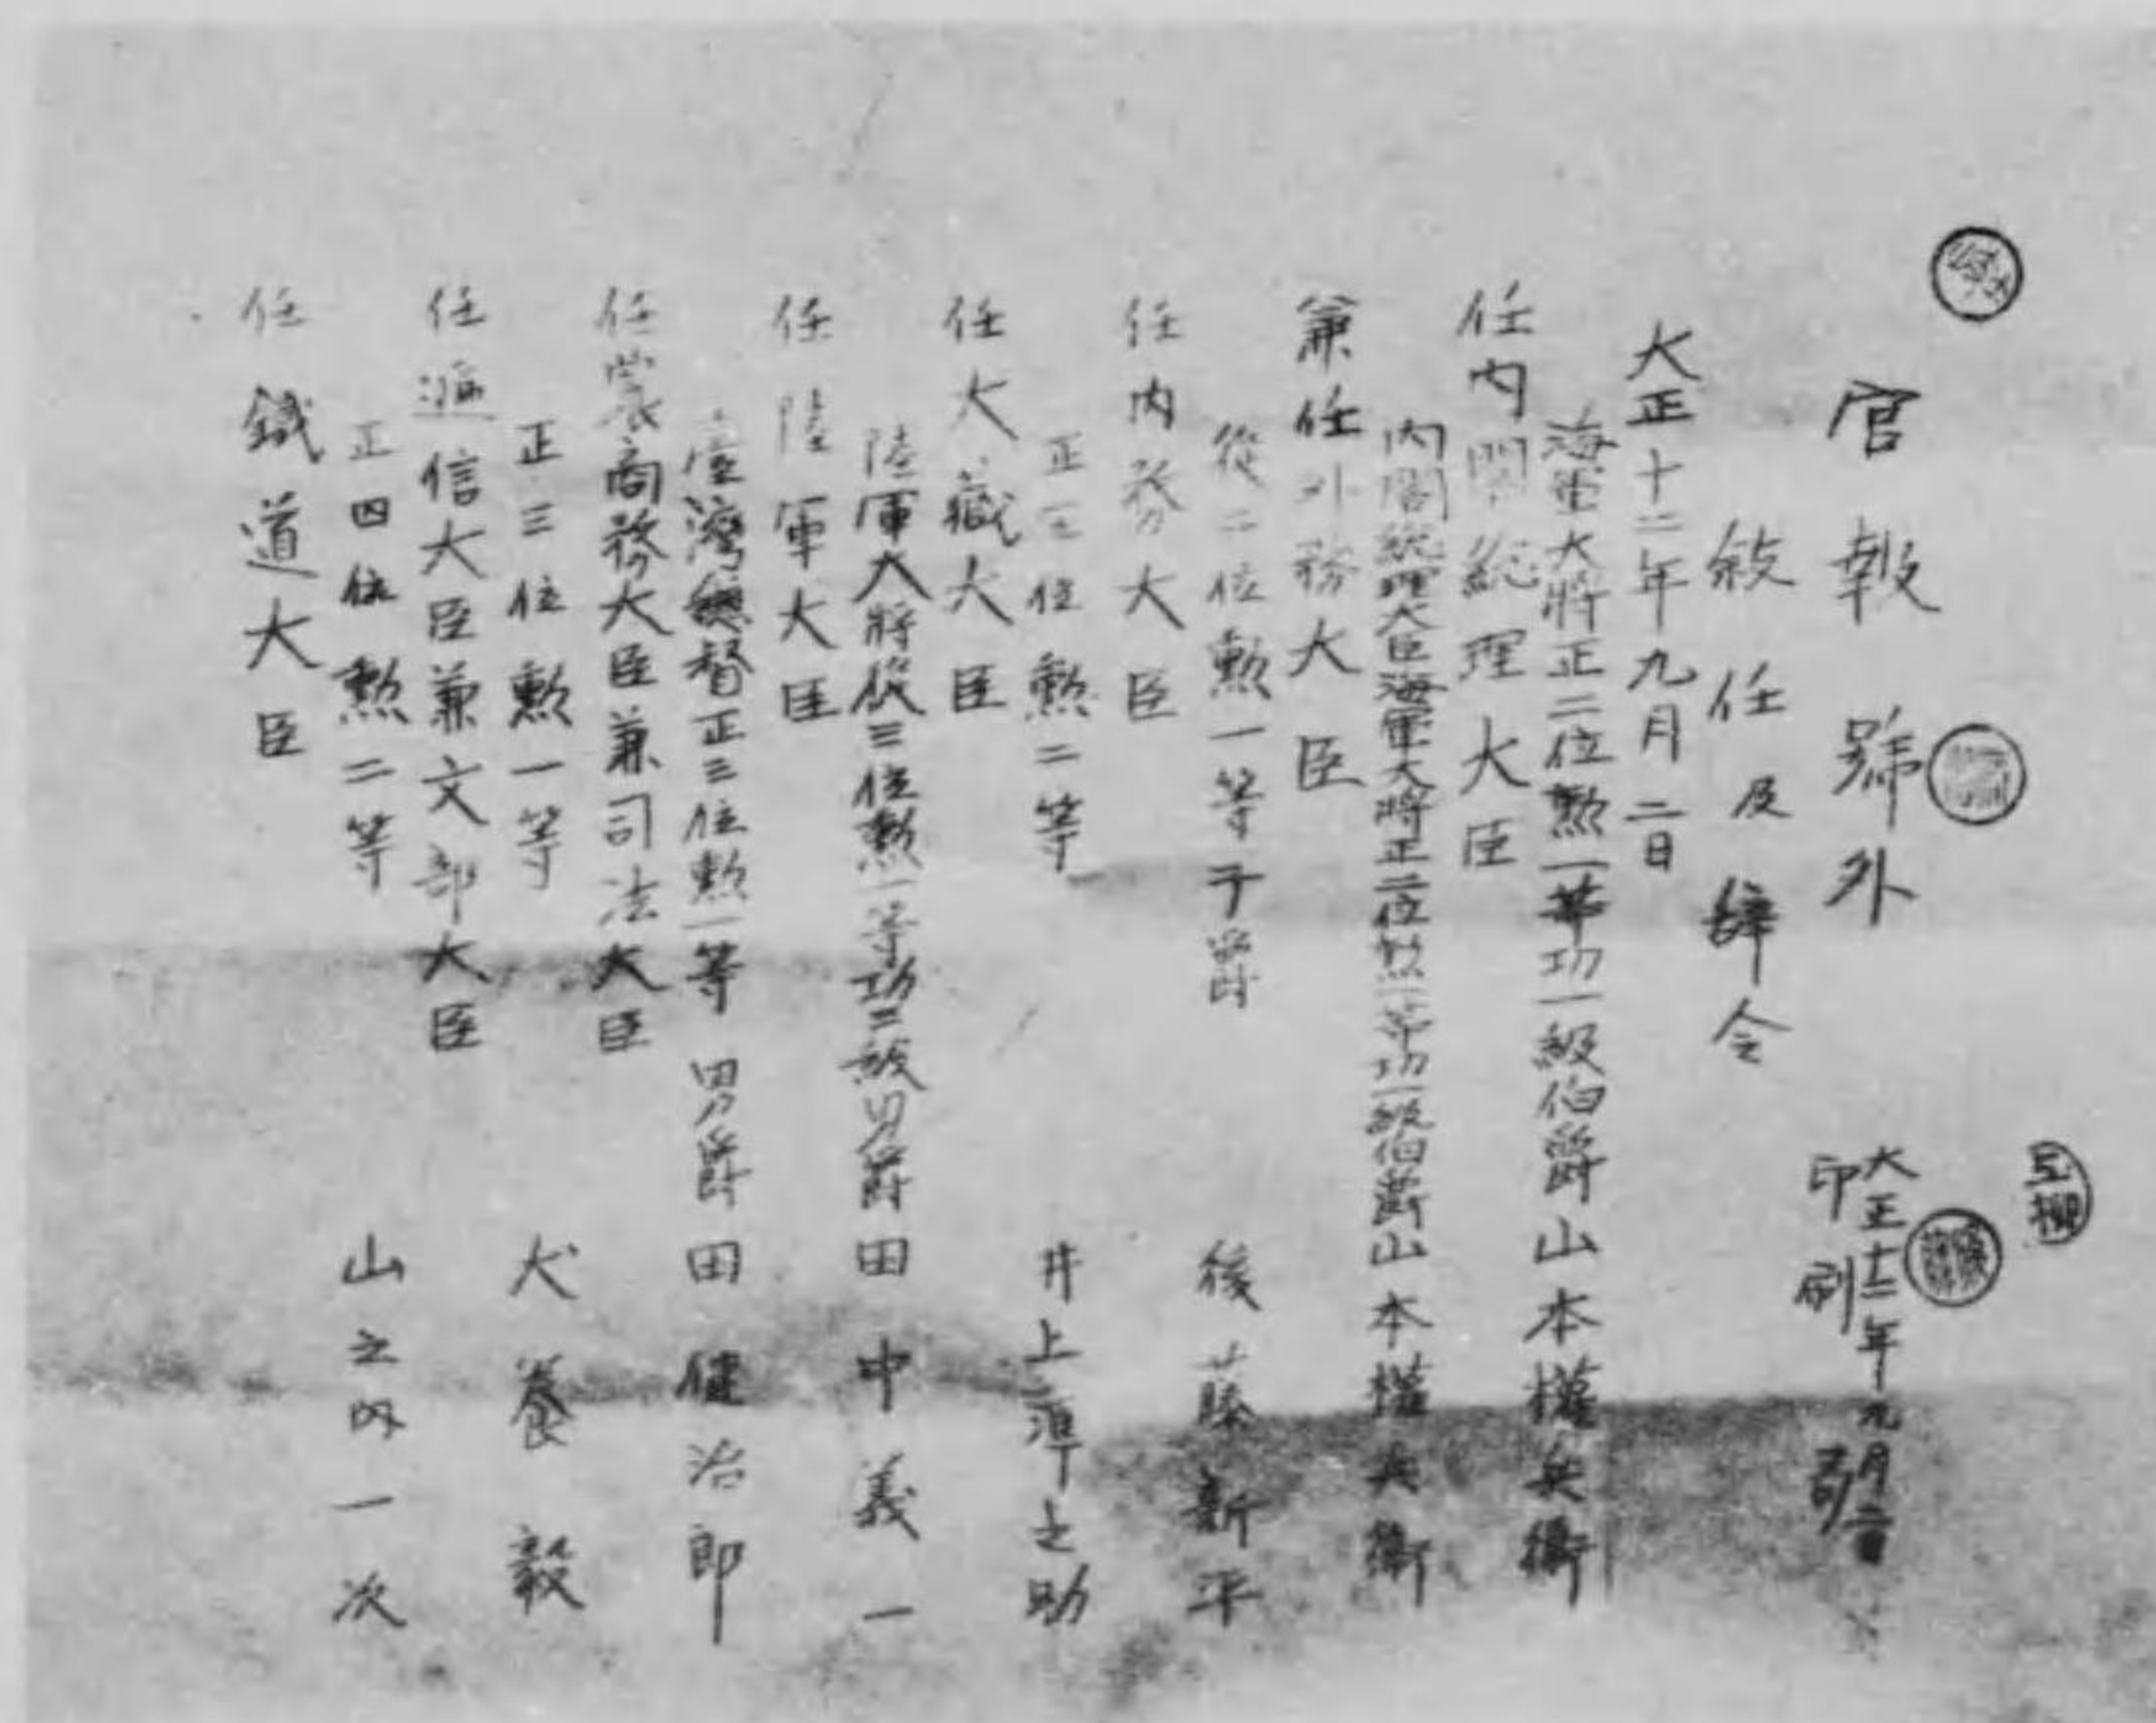 官報號外
大正十二年九月二日
印刷
敍任及辞令
大正十二年九月二日
海軍大將正二位勲一等功一級伯爵山本權兵衞
任内閣総理大臣
内閣総理大臣海軍大將正二位勲一等功一級伯爵山本權兵衞
兼任外務大臣
從二位勲一等子爵 後藤新平
任内務大臣
正三位勲二等 井上準之助
任大藏大臣
陸軍大將從三位勲一等功三級男爵田中義一
任陸軍大臣
臺灣總督正三位勲一等 男爵 田健治郎
任農商務大臣兼司法大臣
正三位勲一等 犬養毅
任逓信大臣兼文部大臣
正四位勲二等 山之内一次
任鐵道大臣